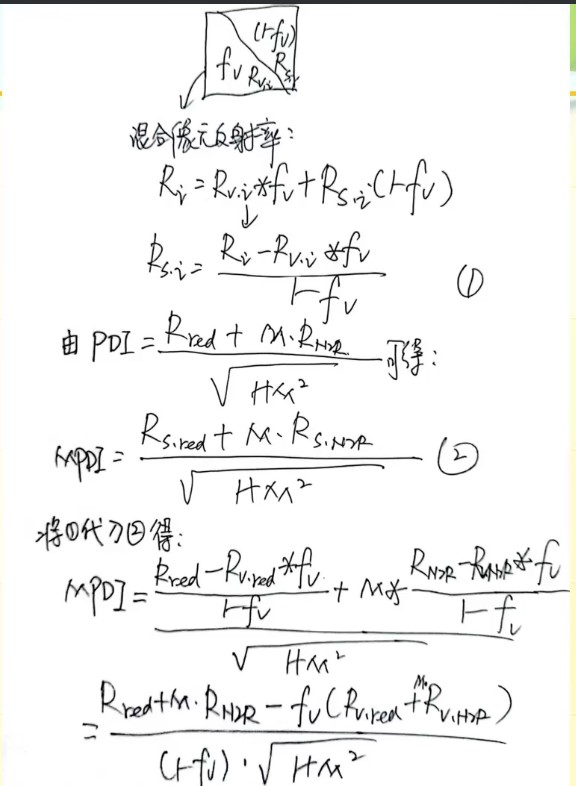 (1-fv)
fv Rv,i Rs,i
混合像元反射率:
Ri = Rv,i*fv + Rs,i(1-fv)
Rs,i = (Ri - Rv,i*fv) / (1-fv) ①
由 PDI = (Rred + M·RNIR) / √(1+M²) 可得:
MPDI = (Rs,red + M·Rs,NIR) / √(1+M²) ②
将①代入②得:
MPDI = ((Rred - Rv,red*fv) / (1-fv) + M* (RNIR - Rv,NIR*fv) / (1-fv)) / √(1+M²)
= (Rred + M·RNIR - fv(Rv,red + M·Rv,NIR)) / ((1-fv)·√(1+M²))